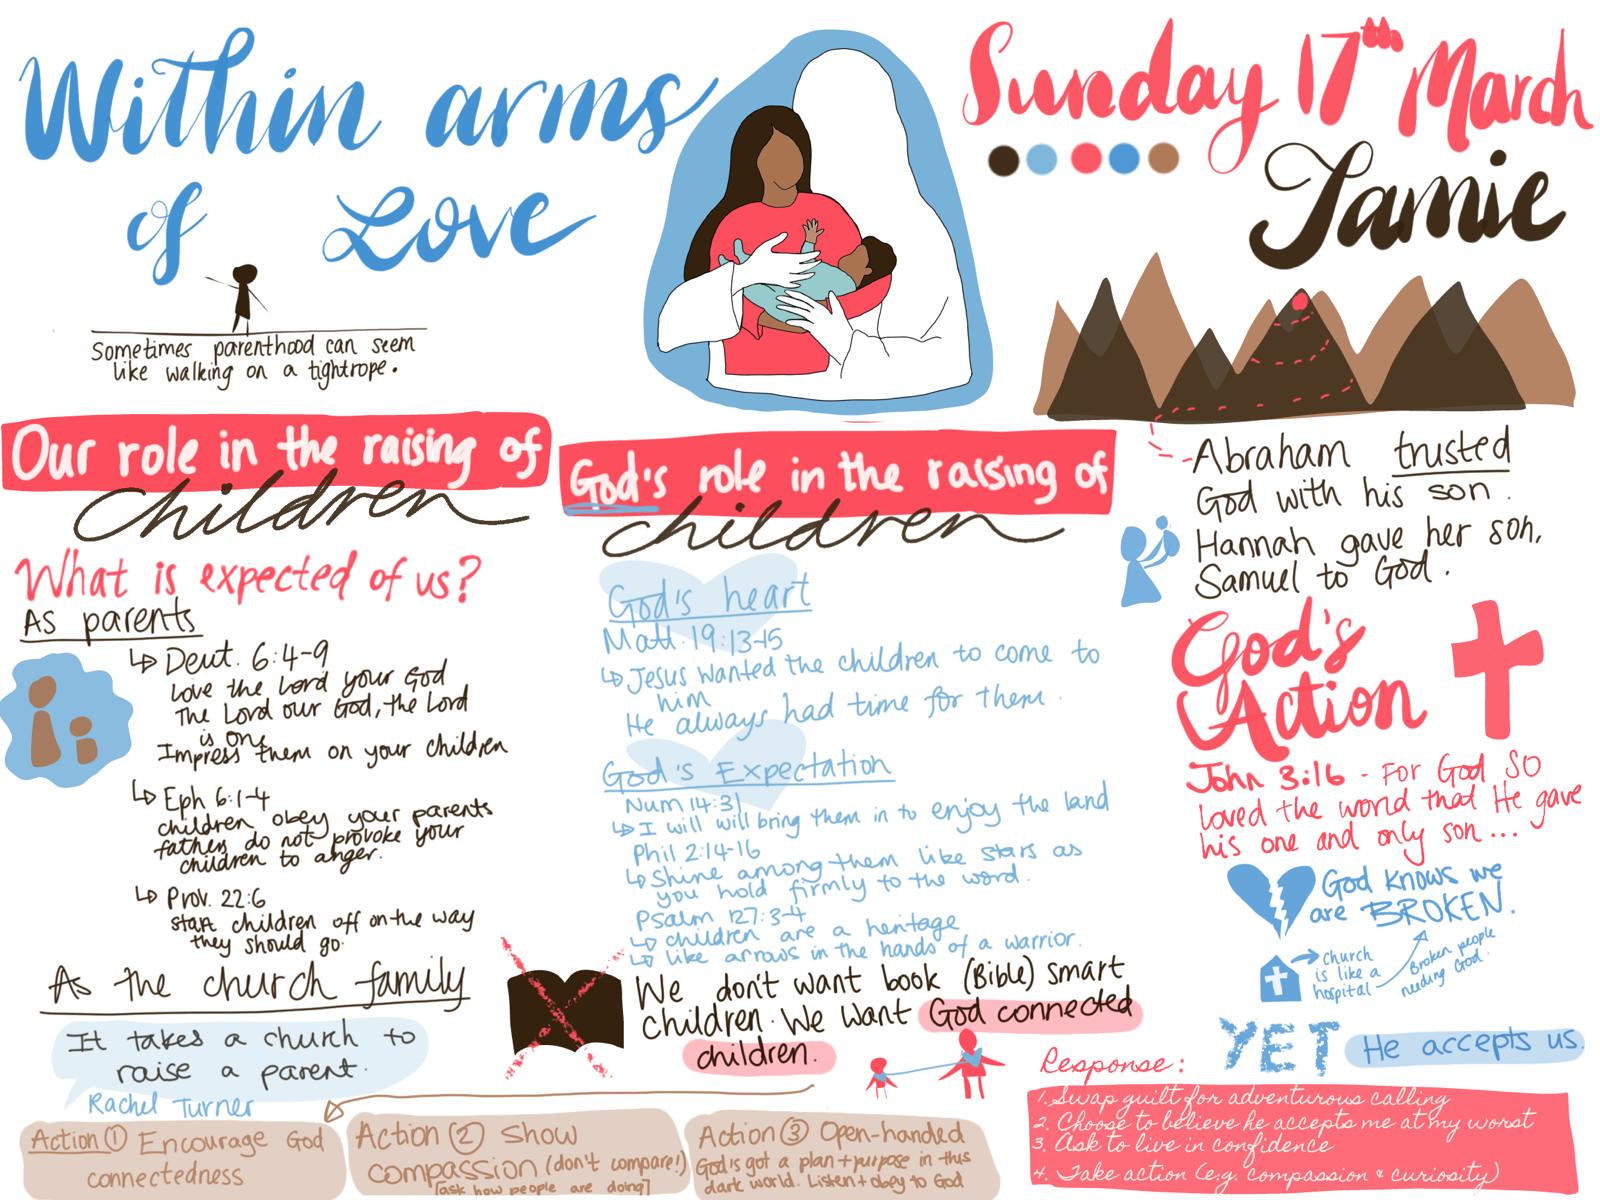 Within arms
of Love
Sunday 17th March
Jamie
Sometimes parenthood can seem
like walking on a tightrope.
Our role in the raising of
children
What is expected of us?
As parents
↳ Deut. 6:4-9
Love the Lord your God
The Lord our God, the Lord
is one
Impress them on your children
↳ Eph 6:1-4
children obey your parents
fathers do not provoke your
children to anger.
↳ Prov. 22:6
start children off on the way
they should go.
As the church family
It takes a church to
raise a parent.
Rachel Turner
God's role in the raising of
children
God's heart
Matt. 19:13-15
↳ Jesus wanted the children to come to
him
He always had time for them.
God's Expectation
Num 14:31
↳ I will will bring them in to enjoy the land
Phil 2:14-16
↳ Shine among them like stars as
you hold firmly to the word.
Psalm 127:3-4
↳ children are a heritage
↳ like arrows in the hands of a warrior.
We don't want book (Bible) smart
children. We want God connected
children.
Abraham trusted
God with his son.
Hannah gave her son,
Samuel to God.
God's
Action
John 3:16 - For God SO
loved the world that He gave
his one and only son...
God knows we
are BROKEN.
church
is like a
hospital
Broken people
needing God.
YET He accepts us.
Response:
1. Swap guilt for adventurous calling
2. Choose to believe he accepts me at my worst
3. Ask to live in confidence
4. Take action (e.g. compassion & curiosity)
Action ① Encourage God
connectedness
Action ② Show
compassion (don't compare!)
[ask how people are doing]
Action ③ Open-handed
God's got a plan + purpose in this
dark world. Listen + obey to God